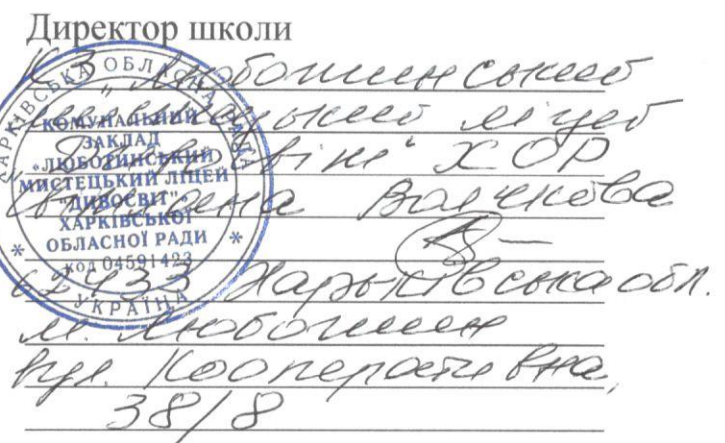 Директор школи
КЗ Люботинський
мистецький ліцей
"Дивосвіт" ХОР
Волчкова
62433 Харьківська обл.
м. Люботин
вул. Кооперативна,
38/8
ХАРКІВСЬКА ОБЛАСНА РАДА
КОМУНАЛЬНИЙ
ЗАКЛАД
«ЛЮБОТИНСЬКИЙ
МИСТЕЦЬКИЙ ЛІЦЕЙ
"ДИВОСВІТ"»
ХАРКІВСЬКОЇ
ОБЛАСНОЇ РАДИ
код 04591423
* УКРАЇНА *